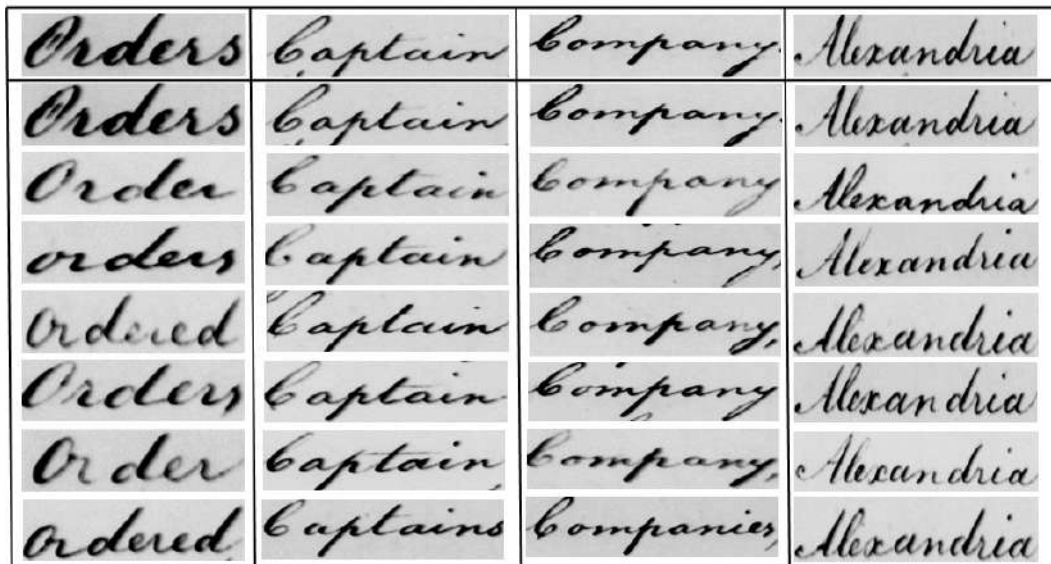 Orders Captain Company. Alexandria
Orders Captain Company. Alexandria
Order Captain Company Alexandria
orders Captain Company, Alexandria
Ordered Captain Company, Alexandria
Orders, Captain Company Alexandria
Order Captain, Company, Alexandria
Ordered Captains Companies, Alexandria